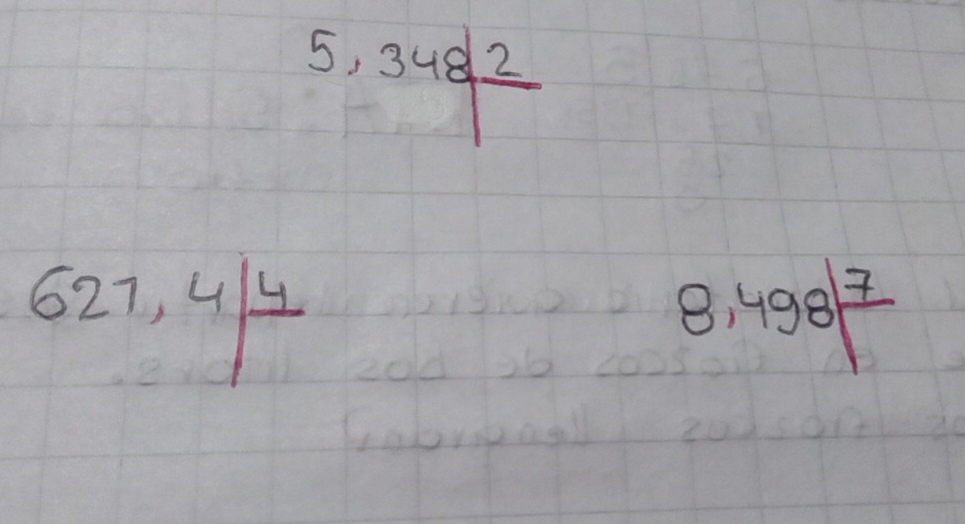 5, 348 2
621, 4 4
8,498 7